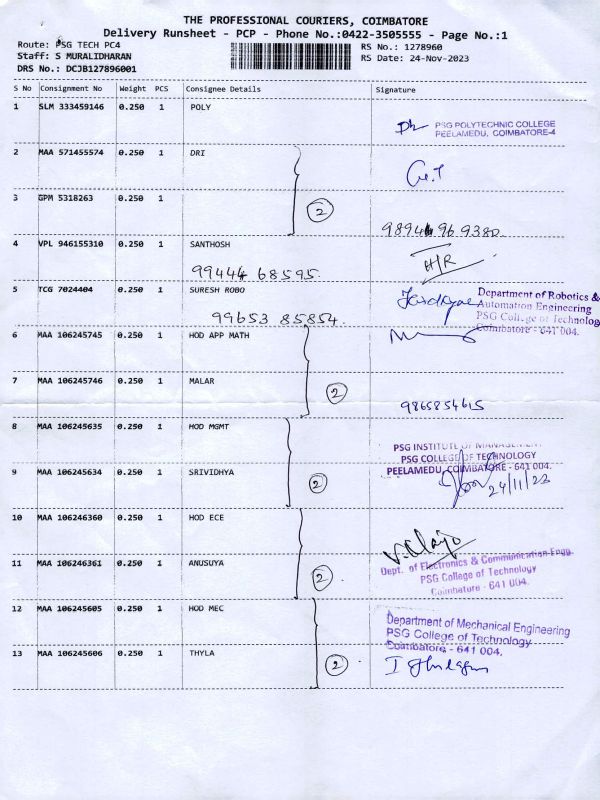 THE PROFESSIONAL COURIERS, COIMBATORE
Delivery Runsheet - PCP - Phone No.:0422-3505555 - Page No.:1
Route: PSG TECH PC4
Staff: S MURALIDHARAN
DRS No.: DCJB127896001
RS No.: 1278960
RS Date: 24-Nov-2023
S No Consignment No Weight PCS Consignee Details Signature
1 SLM 333459146 0.250 1 POLY
PSG POLYTECHNIC COLLEGE
PEELAMEDU, COIMBATORE-4
2 MAA 571455574 0.250 1 DRI
3 GPM 5318263 0.250 1
2
98944 96 9380
4 VPL 946155310 0.250 1 SANTHOSH
99444 68595
H/R
5 TCG 7024404 0.250 1 SURESH ROBO
99653 85854
Department of Robotics &
Automation Engineering
PSG College of Technology
Coimbatore - 641 004.
6 MAA 106245745 0.250 1 HOD APP MATH
7 MAA 106245746 0.250 1 MALAR
2
9865854615
8 MAA 106245635 0.250 1 HOD MGMT
PSG INSTITUTE OF MANAGEMENT
PSG COLLEGE OF TECHNOLOGY
PEELAMEDU, COIMBATORE - 641 004.
9 MAA 106245634 0.250 1 SRIVIDHYA
2
24/11/23
10 MAA 106246360 0.250 1 HOD ECE
11 MAA 106246361 0.250 1 ANUSUYA
2
Dept. of Electronics & Communication Engg.
PSG College of Technology
Coimbatore - 641 004.
12 MAA 106245605 0.250 1 HOD MEC
Department of Mechanical Engineering
PSG College of Technology
Coimbatore - 641 004.
13 MAA 106245606 0.250 1 THYLA
2